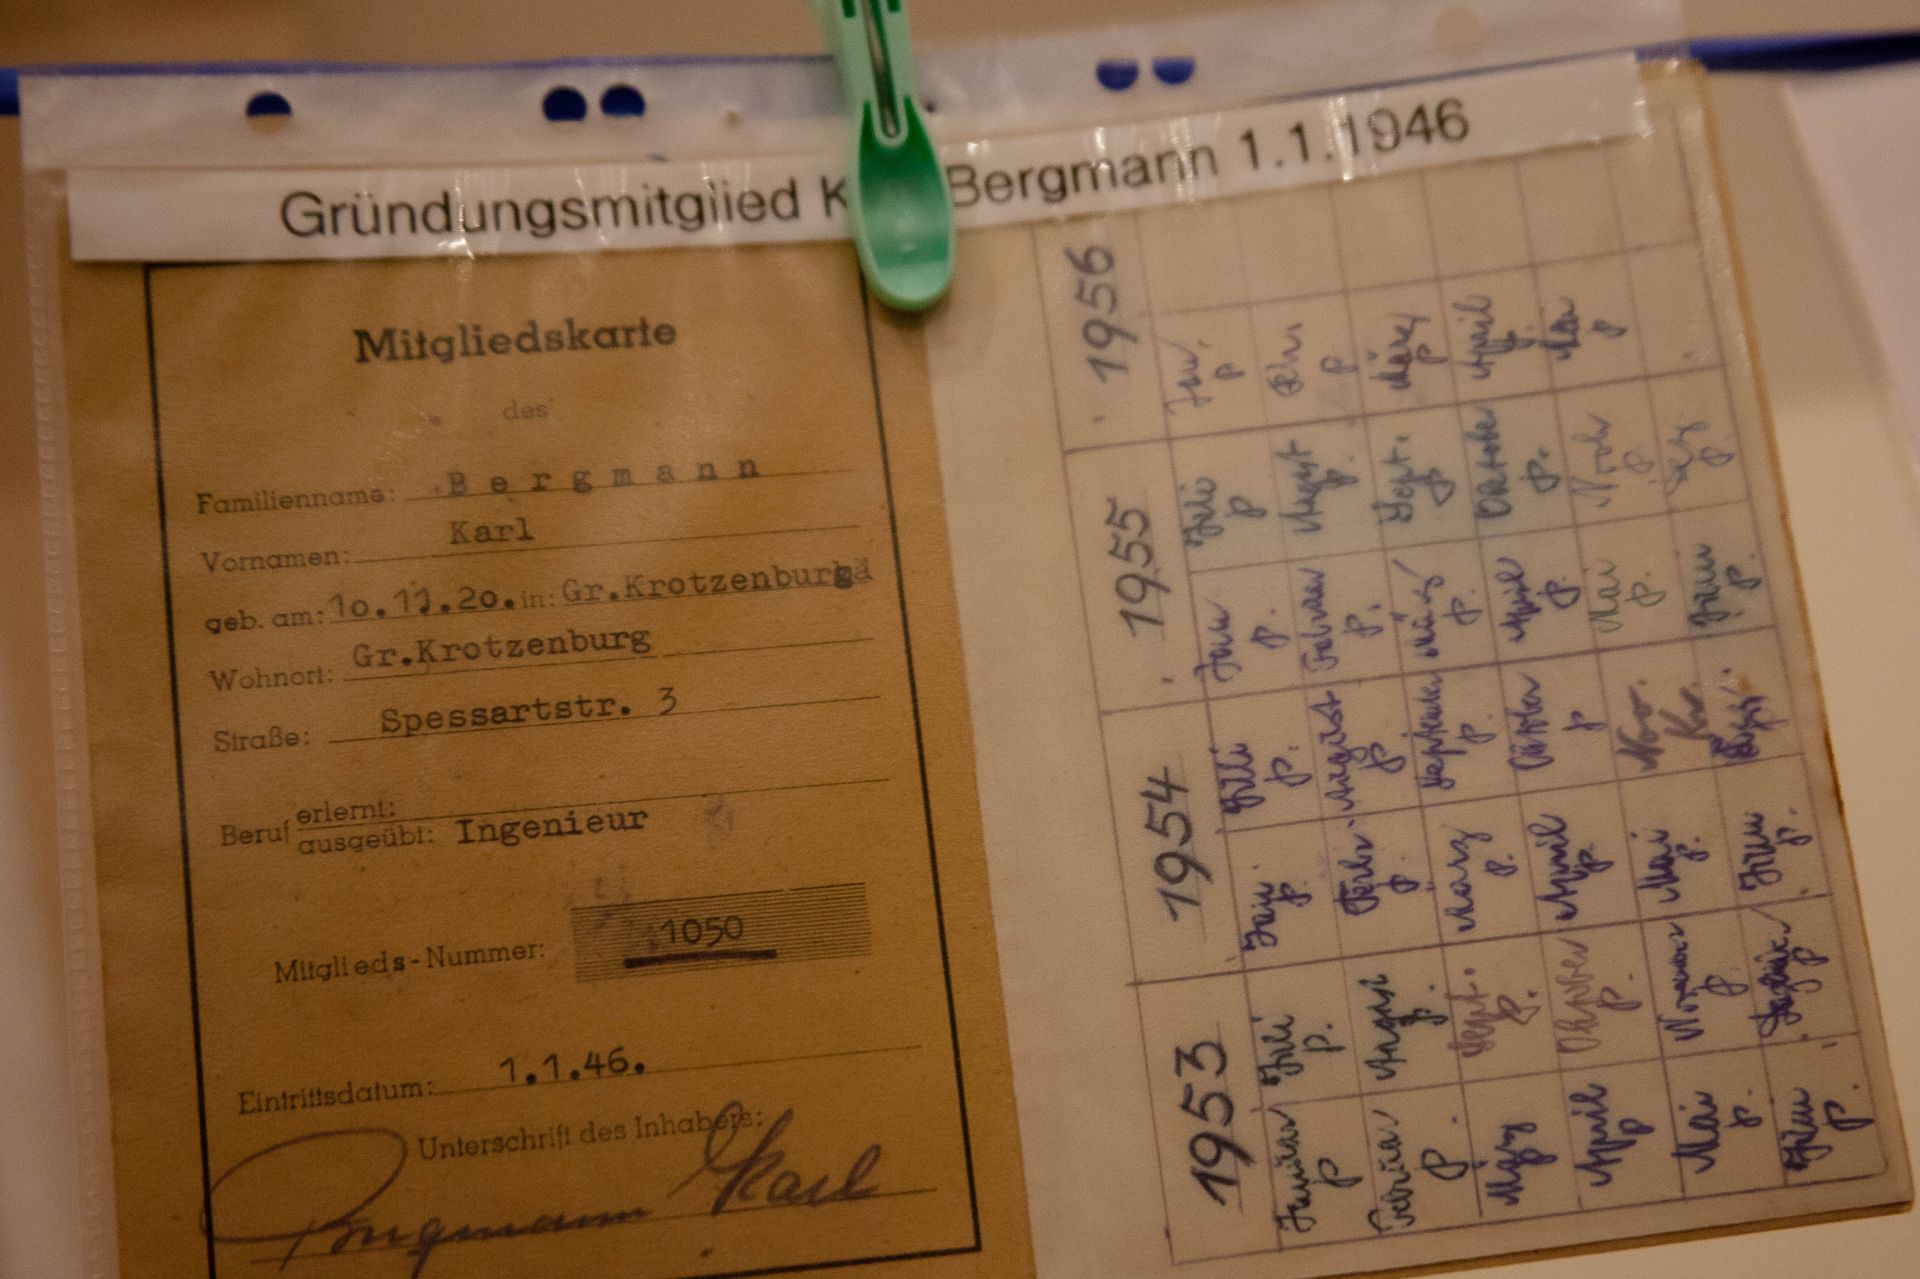 Gründungsmitglied K Bergmann 1.1.1946
Mitgliedskarte
des
Familienname: Bergmann
Vornamen: Karl
geb. am: 10.11.20. in: Gr.Krotzenburg
Wohnort: Gr.Krotzenburg
Straße: Spessartstr. 3
Beruf erlernt:
ausgeübt: Ingenieur
Mitglieds-Nummer: 1050
Eintrittsdatum: 1.1.46.
Unterschrift des Inhabers:
Bergmann Karl
1956
Jan. Febr. März April Mai
1955
Juli August Sept. Oktober Nov. Dez.
Januar Februar März April Mai Juni
1954
Juli August September Oktober Nov.
Jan. Febr. März April Mai Juni
1953
Juli August Sept. Oktober November
Januar Februar März April Mai Juni